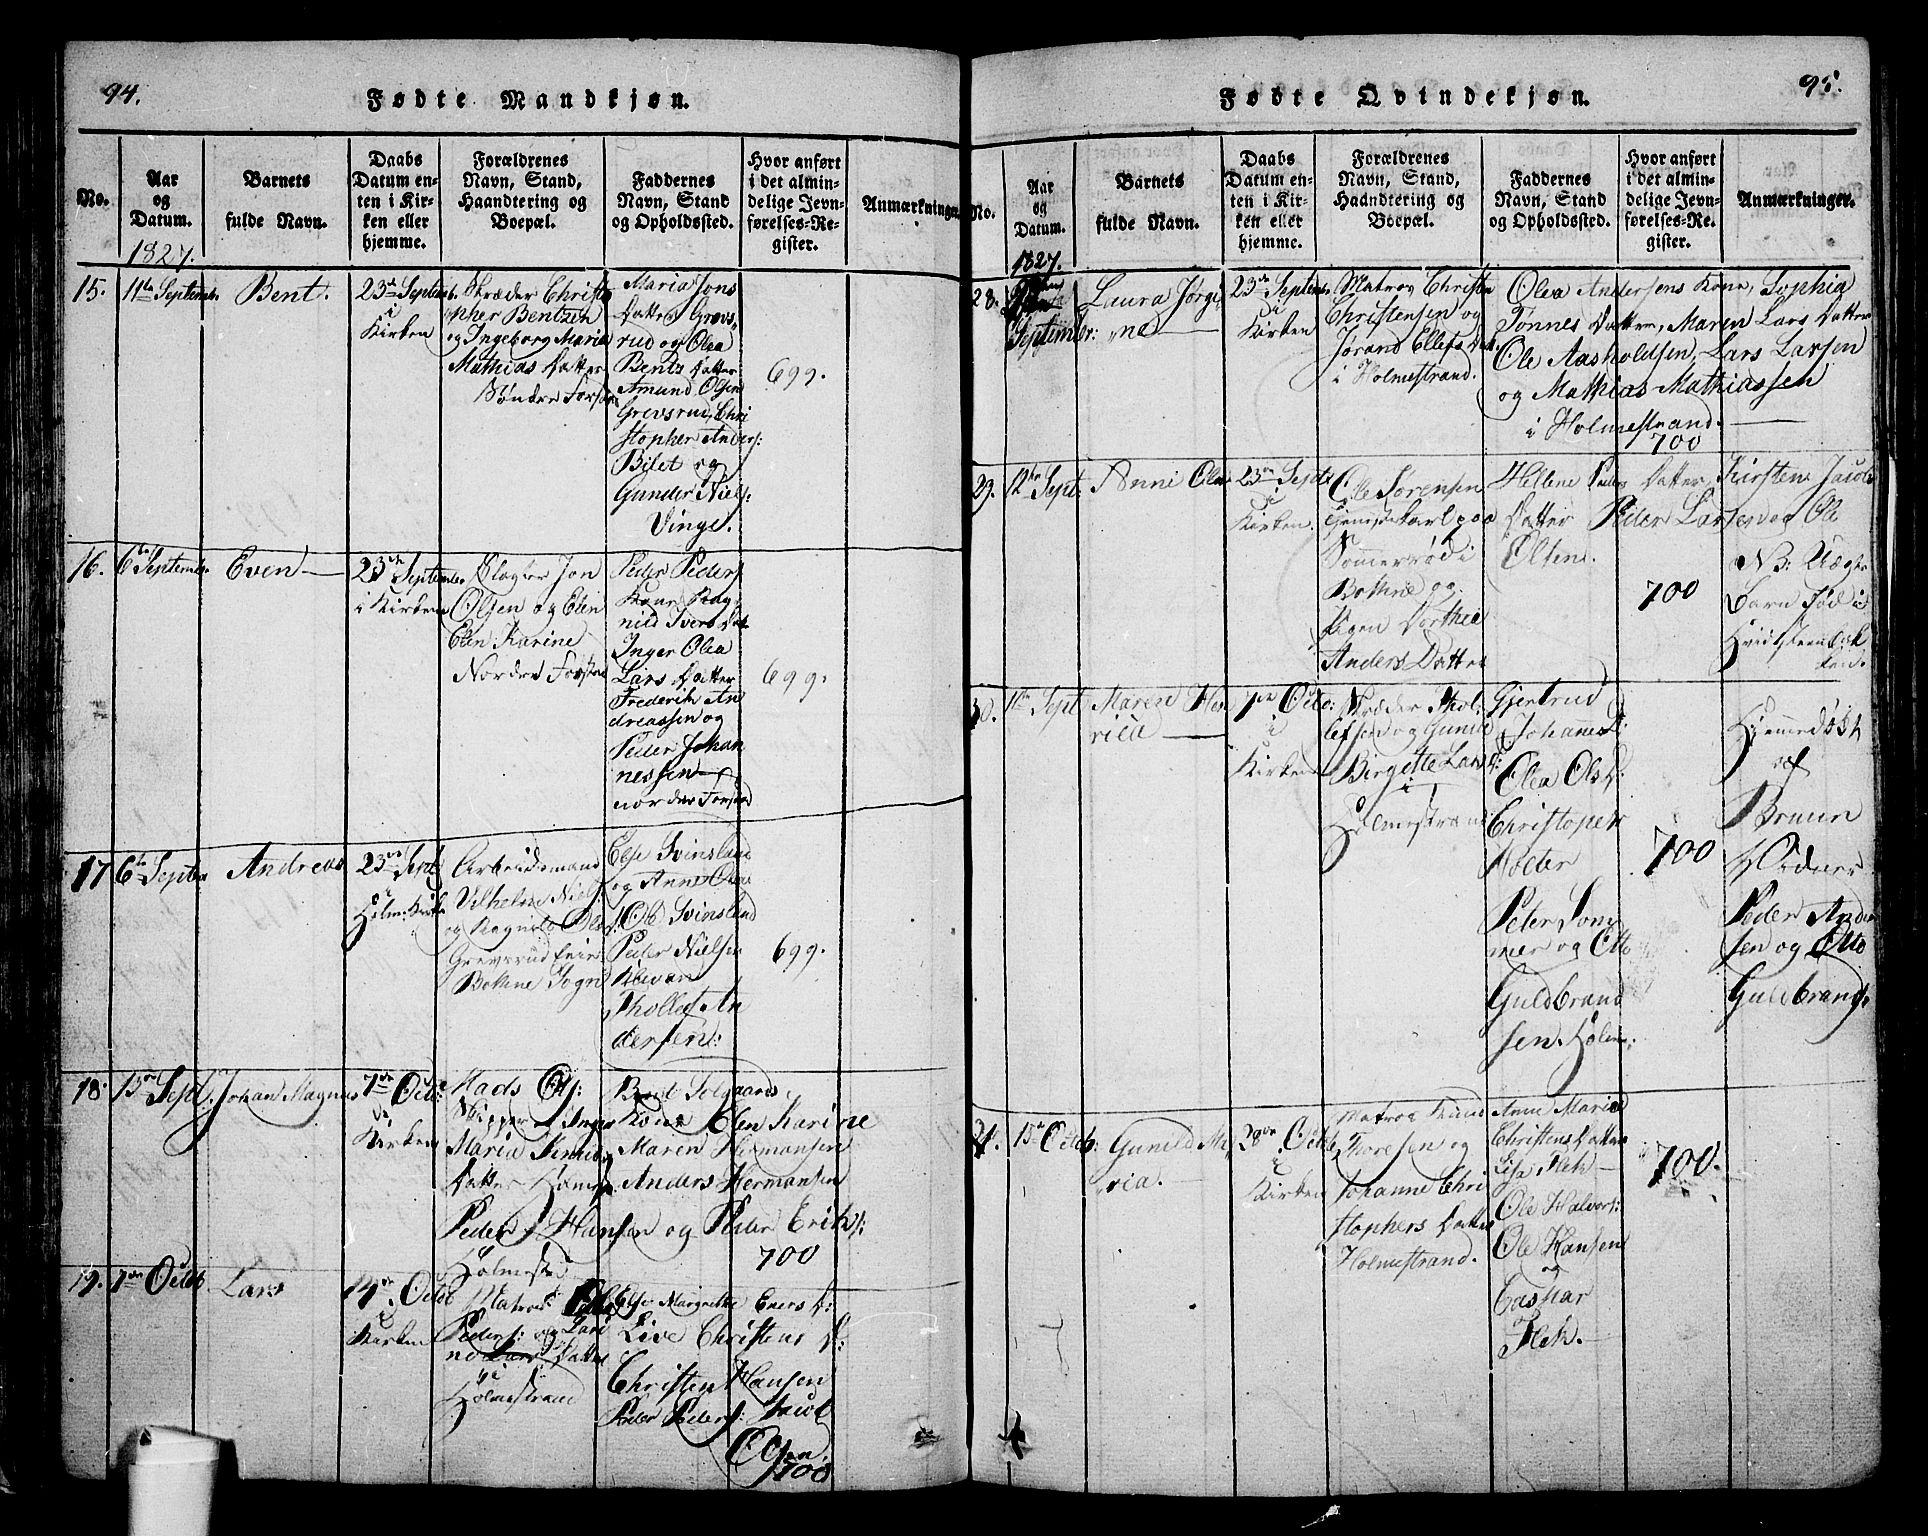 94.
Fødte Mandkjøn.
No.
Aar
og
Datum.
1827.
Barnets
fulde Navn.
Daabs
Datum en-
ten i Kir-
ken eller
hjemme.
Forældrenes
Navn, Stand,
Haandtering og
Boepæl.
Faddernes
Navn, Stand
og Opholdssted.
Hvor anført
i det almin-
delige Jevn-
førelses-Re-
gister.
Anmærkninger.
15.
11te Septemb.
Bent.
23de Septemb.
i
Kirken
Skræder Christo
pher Bentzen
og Ingeborg Maria
Mathias Datter
Søndre
Maria Jons
Datter Grevs
rud og Olea
Bents Datter
Amund Olsen
Grevsrud, Chri
stopher Anders:
Bilet og
Gunder Niels:
Vinge.
699.
16.
6te Septembr
Even
23de Septembr
i Kirken
Jon
Olsen og Elen
Elen Karine
Nordre
Peder Peders
Kone Rag
nild Ivers Dat
Inger Olea
Lars Datter
Frederik An
dreassen og
Peder Johan
nessen
nordre
699.
17
6te Septbr
Andreas
23de Septb
i
Holm: Kirke
Arbeidsmand
Vilhelm Niels
og Ragnild Ols
Grevsrud Eier
Bothne Sogn
Else Svinsland
og Anne Olea
Ole Svinsland
Peder Nielsen
Klevan
Thollef An
dersen:
699.
18.
13de Sept.
Johan Magnus
7de Octb:
i
Kirken
Mads Ols:
Skipper Inger
Maria Knuds
Datter Holmst
Bent Solgaards
Kone Elen Karine
Maren Hermansen
Anders Hermansen
Peder Hansen og Peder Eriks:
Holmestrd
700
19.
7de Octb
Lars
14de Octb
i
Kirken
Matros
Peders: og Kari
ne Lars Datter
i
Holmestrand
Else Margrethe Evers D:
Live Christens D:
Christen Hansen
Peder Peders: Jacob
Olsen.
700
95.
Fødte Qvindekjøn.
No.
Aar
og
Datum.
1827.
Barnets
fulde Navn.
Daabs
Datum en-
ten i Kir-
ken eller
hjemme.
Forældrenes
Navn, Stand,
Haandtering og
Boepæl.
Faddernes
Navn, Stand
og Opholdssted.
Hvor anført
i det almin-
delige Jevn-
førelses-Re-
gister.
Anmærkninger.
28.
September:
Laura Jørgi
ne
23de Septembr
i
Kirken
Matros Christen
Christensen og
Jørand Ellefs Dat
i Holmestrand.
Olea Andersens Kone, Sophia
Tønnes Datter, Maren Lars Datter
Ole Aasholdsen, Lars Larsen
og Mathias Mathiassen
i Holmestrand.
700
29.
12te Sept.
Anne Olea
23de Septb
i
Kirken.
Ole Sørensen
Tjenestekarl paa
Sommerrød i
Bothne og
Pigen Dorthea
Anders Datter
Hellene Peders Datter, Kirstene Jacobs
Datter Peder Larsen og Ole
Olsen.
700
NB: Uægte
Barn Fød i
30.
Sept
Maren Hen
rica
7de Octb:
i
Kirken
Skræder Thol
lefsen og Gunild
Birgitte Lars D:
i
Holmestrand
Gjertrud
Johannes D:
Olea Ols D:
Christopher
Holter
Peter Som
mer og Otto
Guldbrand
sen. Holm:
700
Hjemmedøbt
af
Bruun
Vidner
Peder Ander
sen og Otto
Guldbrands:
21.
15de Octb:
Gunild Ma
ria.
28de Octb
i
Kirken
Matros Knud
Thoresen og
Johanne Chri
stophers Datter
Holmestrand.
Anne Maria
Christens Datter
Lisa Flek
Ole Halvors:
Ole Hansen
og
Caspar
Flek.
700.